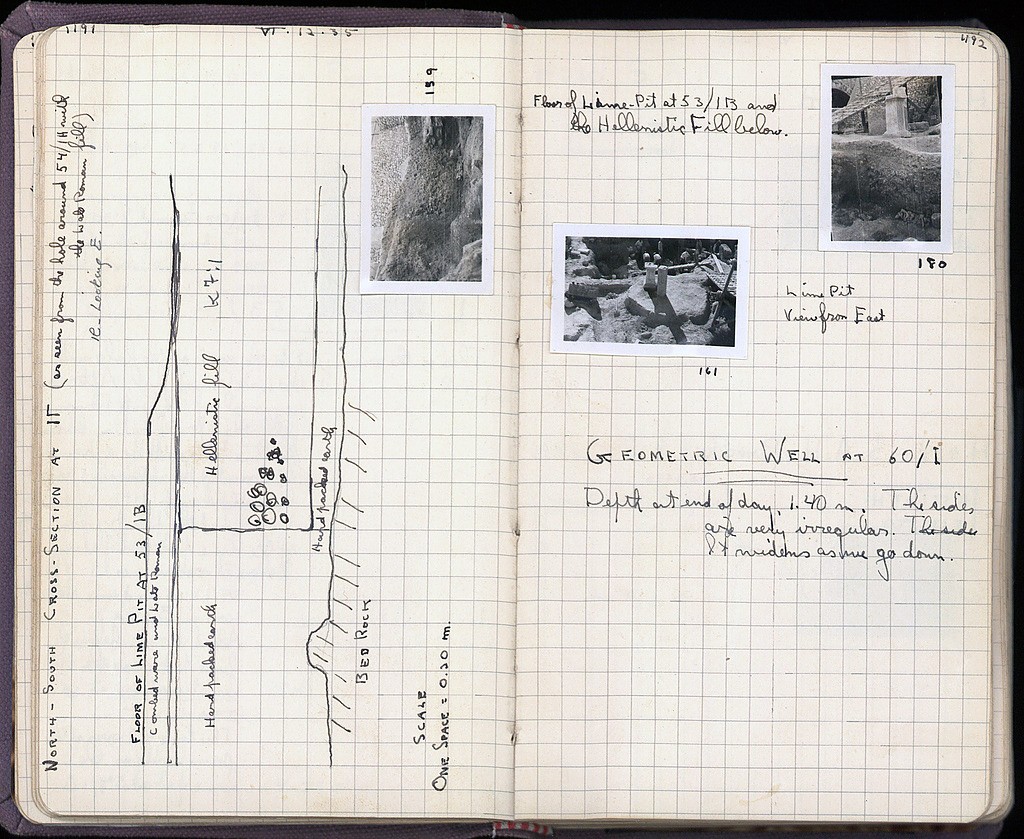 1191
VI.12.35
NORTH - SOUTH CROSS-SECTION AT ΙΓ (as seen from the hole around 54/ΙΗ with
the Late Roman fill)
ie. Looking E.
FLOOR OF LIME PIT AT 53/ΙΒ
Combed ware and Late Roman
Hard packed earth
Hellenistic fill
K 7:1
Hard packed earth
BED ROCK
SCALE
ONE SPACE = 0.20 m.
159
1192
Floor of Lime-Pit at 53/ΙΒ and
the Hellenistic Fill below.
180
161
Lime Pit
View from East
GEOMETRIC WELL AT 60/Ι
Depth at end of day, 1.40 m. The sides
are very irregular. The sides
It widens as we go down.